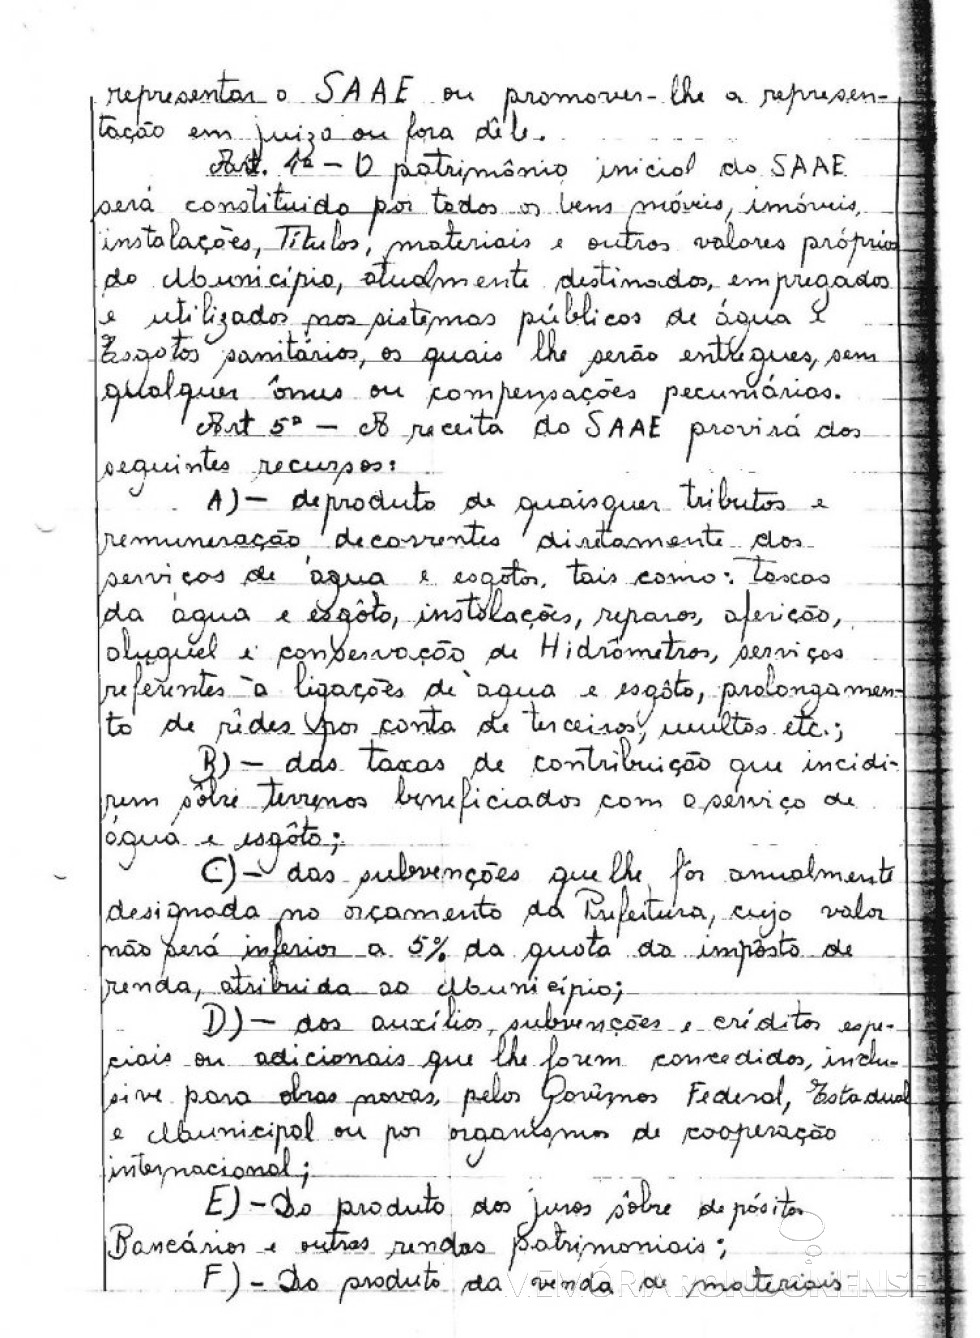 representar o SAAE ou promover-lhe a represen-
tação em juizo ou fora dêle.
Art. 4º - O patrimônio inicial do SAAE
será constituido por todos os bens móveis, imóveis,
instalações, Títulos, materiais e outros valores próprios
do Município, atualmente destinados, empregados
e utilizados nos sistemas públicos de água e
Esgotos sanitários, os quais lhe serão entregues, sem
qualquer ônus ou compensações pecuniárias.
Art 5º - A receita do SAAE provirá dos
seguintes recursos:
A) - do produto de quaisquer tributos e
remuneração decorrentes diretamente dos
serviços de água e esgotos, tais como: Taxas
da água e esgôto, instalações, reparos, aferição,
aluguel e conservação de Hidrômetros, serviços
referentes à ligações de água e esgôto, prolongamen-
to de rêdes por conta de terceiros, multas etc.;
B) - das taxas de contribuição que incidi-
rem sôbre terrenos beneficiados com o serviço de
água e esgôto;
C) - das subvenções que lhe fôr anualmente
designada no orçamento da Prefeitura, cujo valor
não será inferior a 5% da quota do impôsto de
renda, atribuida ao Município;
D) - dos auxílios, subvenções e créditos espe-
ciais ou adicionais que lhe forem concedidos, inclu-
sive para obras novas, pelos Govêrnos Federal, Estadual
e Municipal ou por organismos de cooperação
internacional;
E) - Do produto dos juros sôbre depósitos
Bancários e outras rendas patrimoniais;
F) - Do produto da venda de materiais
MEMÓRIA RONDONENSE